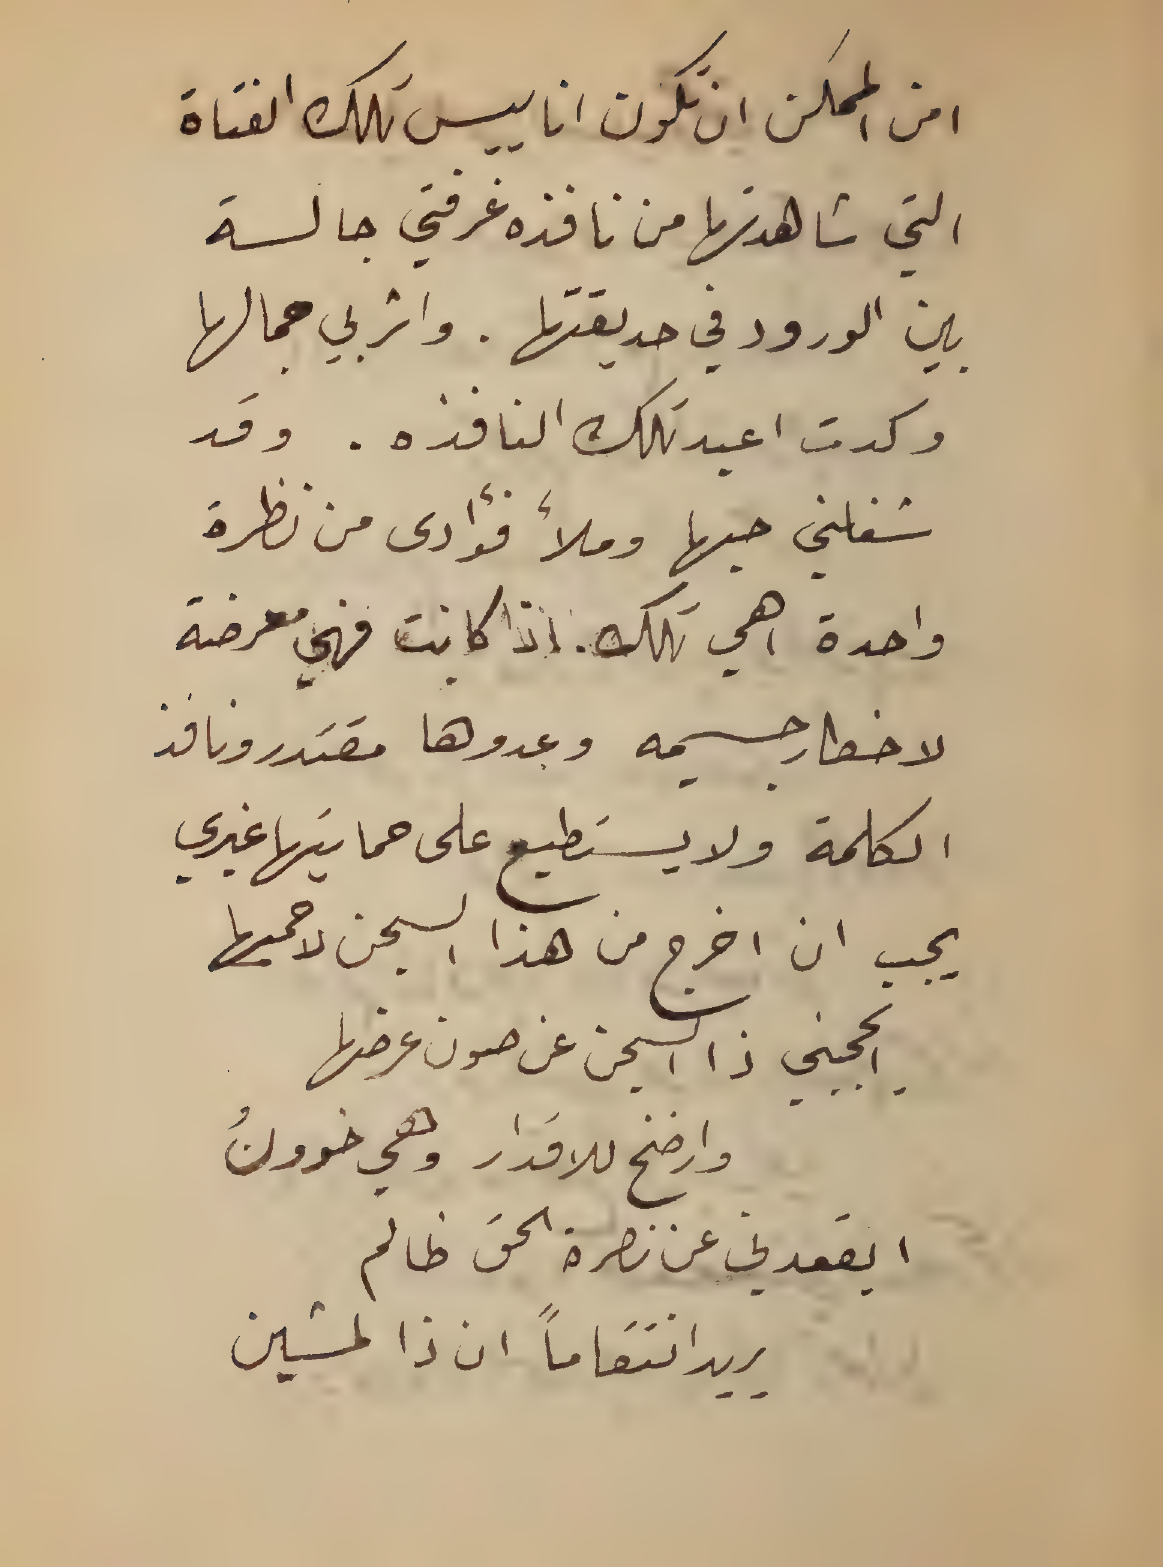 امن الممكن ان تكون انابيس تلك الفتاة
التي شاهدتها من نافذه غرفتي جالسة
بين الورود في حديقتها . واثر بي جمالها
وكدت اعبد تلك النافذه . وقد
شغلني حبها وملأ فؤادى من نظرة
واحدة اهي تلك . اذا كانت فهي معرضة
لاخطار جسيمه وعدوها مقتدر ونافذ
الكلمة ولا يستطيع على حمايتها غيري
يجب ان اخرج من هذا السجن لاحميها
ايحجبني ذا السجن عن صون عرضها
وارضخ للاقدار وهي خوونُ
ايقعدني عن نصرة الحق ظالم
يريد انتقاماً ان ذا لمشين